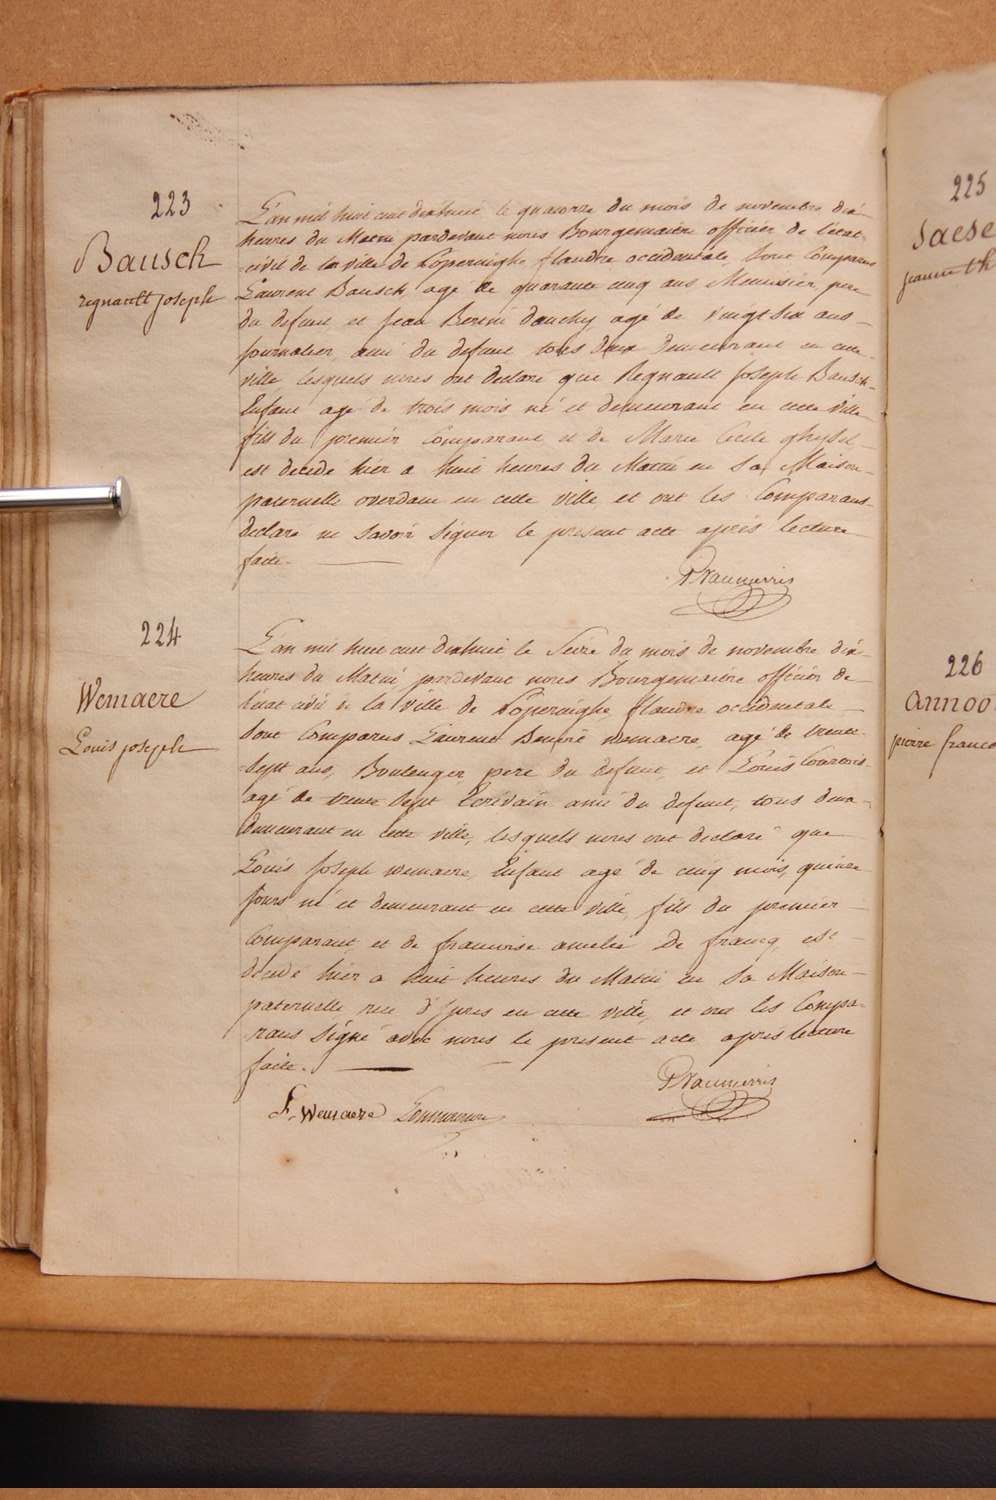 223
Bausch
regnault joseph
L'an mil huit cent dixhuit le quatorze du mois de novembre dix
heures du Matin pardevant nous Bourgemaitre officier de l'etat
civil de la ville de Poperinghe flandre occidentale, Sont Comparus
Laurent Bausch, agé de quarante cinq ans Menuisier, pere
du defunt, et Jean Dauchy agé de vingt six ans
Journalier, ami du defunt tous deux demeurant en cette
ville lesquels nous ont declaré que Regnault Joseph Bausch
Enfant agé de trois mois né et demeurant en cette ville
fils du premier Comparant et de Marie Cecile ghysel
est decede hier a huit heures du Matin en Sa Maison
paternelle overdam en cette ville et ont les Comparans
declaré ne Savoir Signer le present acte après lecture
faite.
224
Wemaere
Louis joseph
L'an mil huit cent dixhuit le Seize du mois de novembre dix
heures du Matin pardevant nous Bourgemaitre officier de
l'etat civil de la Ville de Poperinghe flandre occidentale
Sont Comparus Laurent Benoit wemaere, agé de trente
Sept ans, Boulenger, pere du defunt, et Louis
agé de trente Sept Ecrivain ami du defunt, tous deux
demeurant en cette ville, lesquels nous ont declaré que
Louis Joseph wemaere, Enfant agé de cinq mois, quinze
Jours né et demeurant en cette ville, fils du premier
Comparant et de francoise amelie De francq, est
decede hier a huit heures du Matin en Sa Maison
paternelle rue d'Ypres en cette ville, et ont les Compa-
rans Signé avec nous le present acte apres lecture
faite.
L. Wemaere
225
Saese
226
annoo
pierre franco